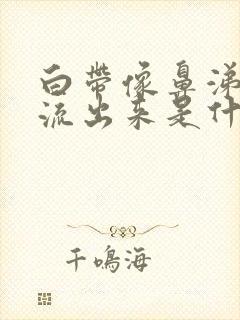 白带像鼻涕
流出来是什
千鸣海